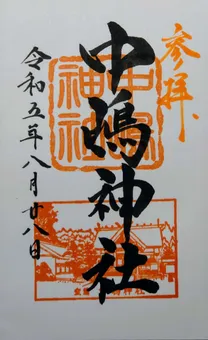 参拝
中嶋神社
令和五年八月廿八日
中嶋神社